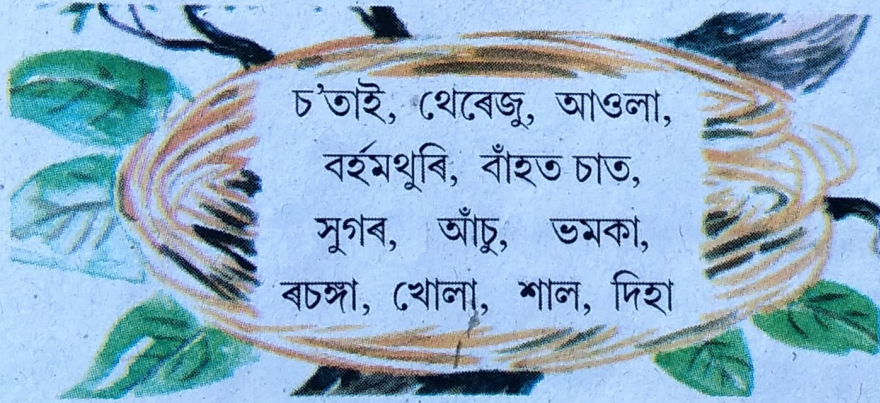 চ'তাই, থেৰেজু, আওলা,
বৰ্হমথুৰি, বাঁহত চাত,
সুগৰ, আঁচু, ভমকা,
ৰচঙ্গা, খোলা, শাল, দিহা